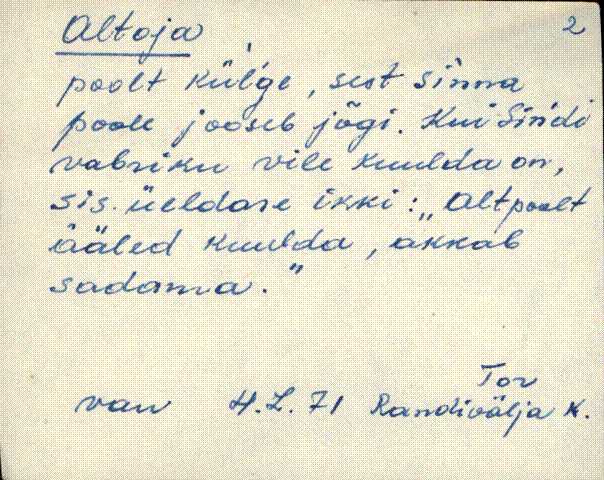 Altoja 2
poolt külge, sest sinna
poole jooseb jõgi. Kui Sindi
vabriku vile kuulda on,
sis üeldase ikki: „Altpoolt
ääled kuulda, akkab
sadama."
Tor
van H.L. 71 Randivälja K.